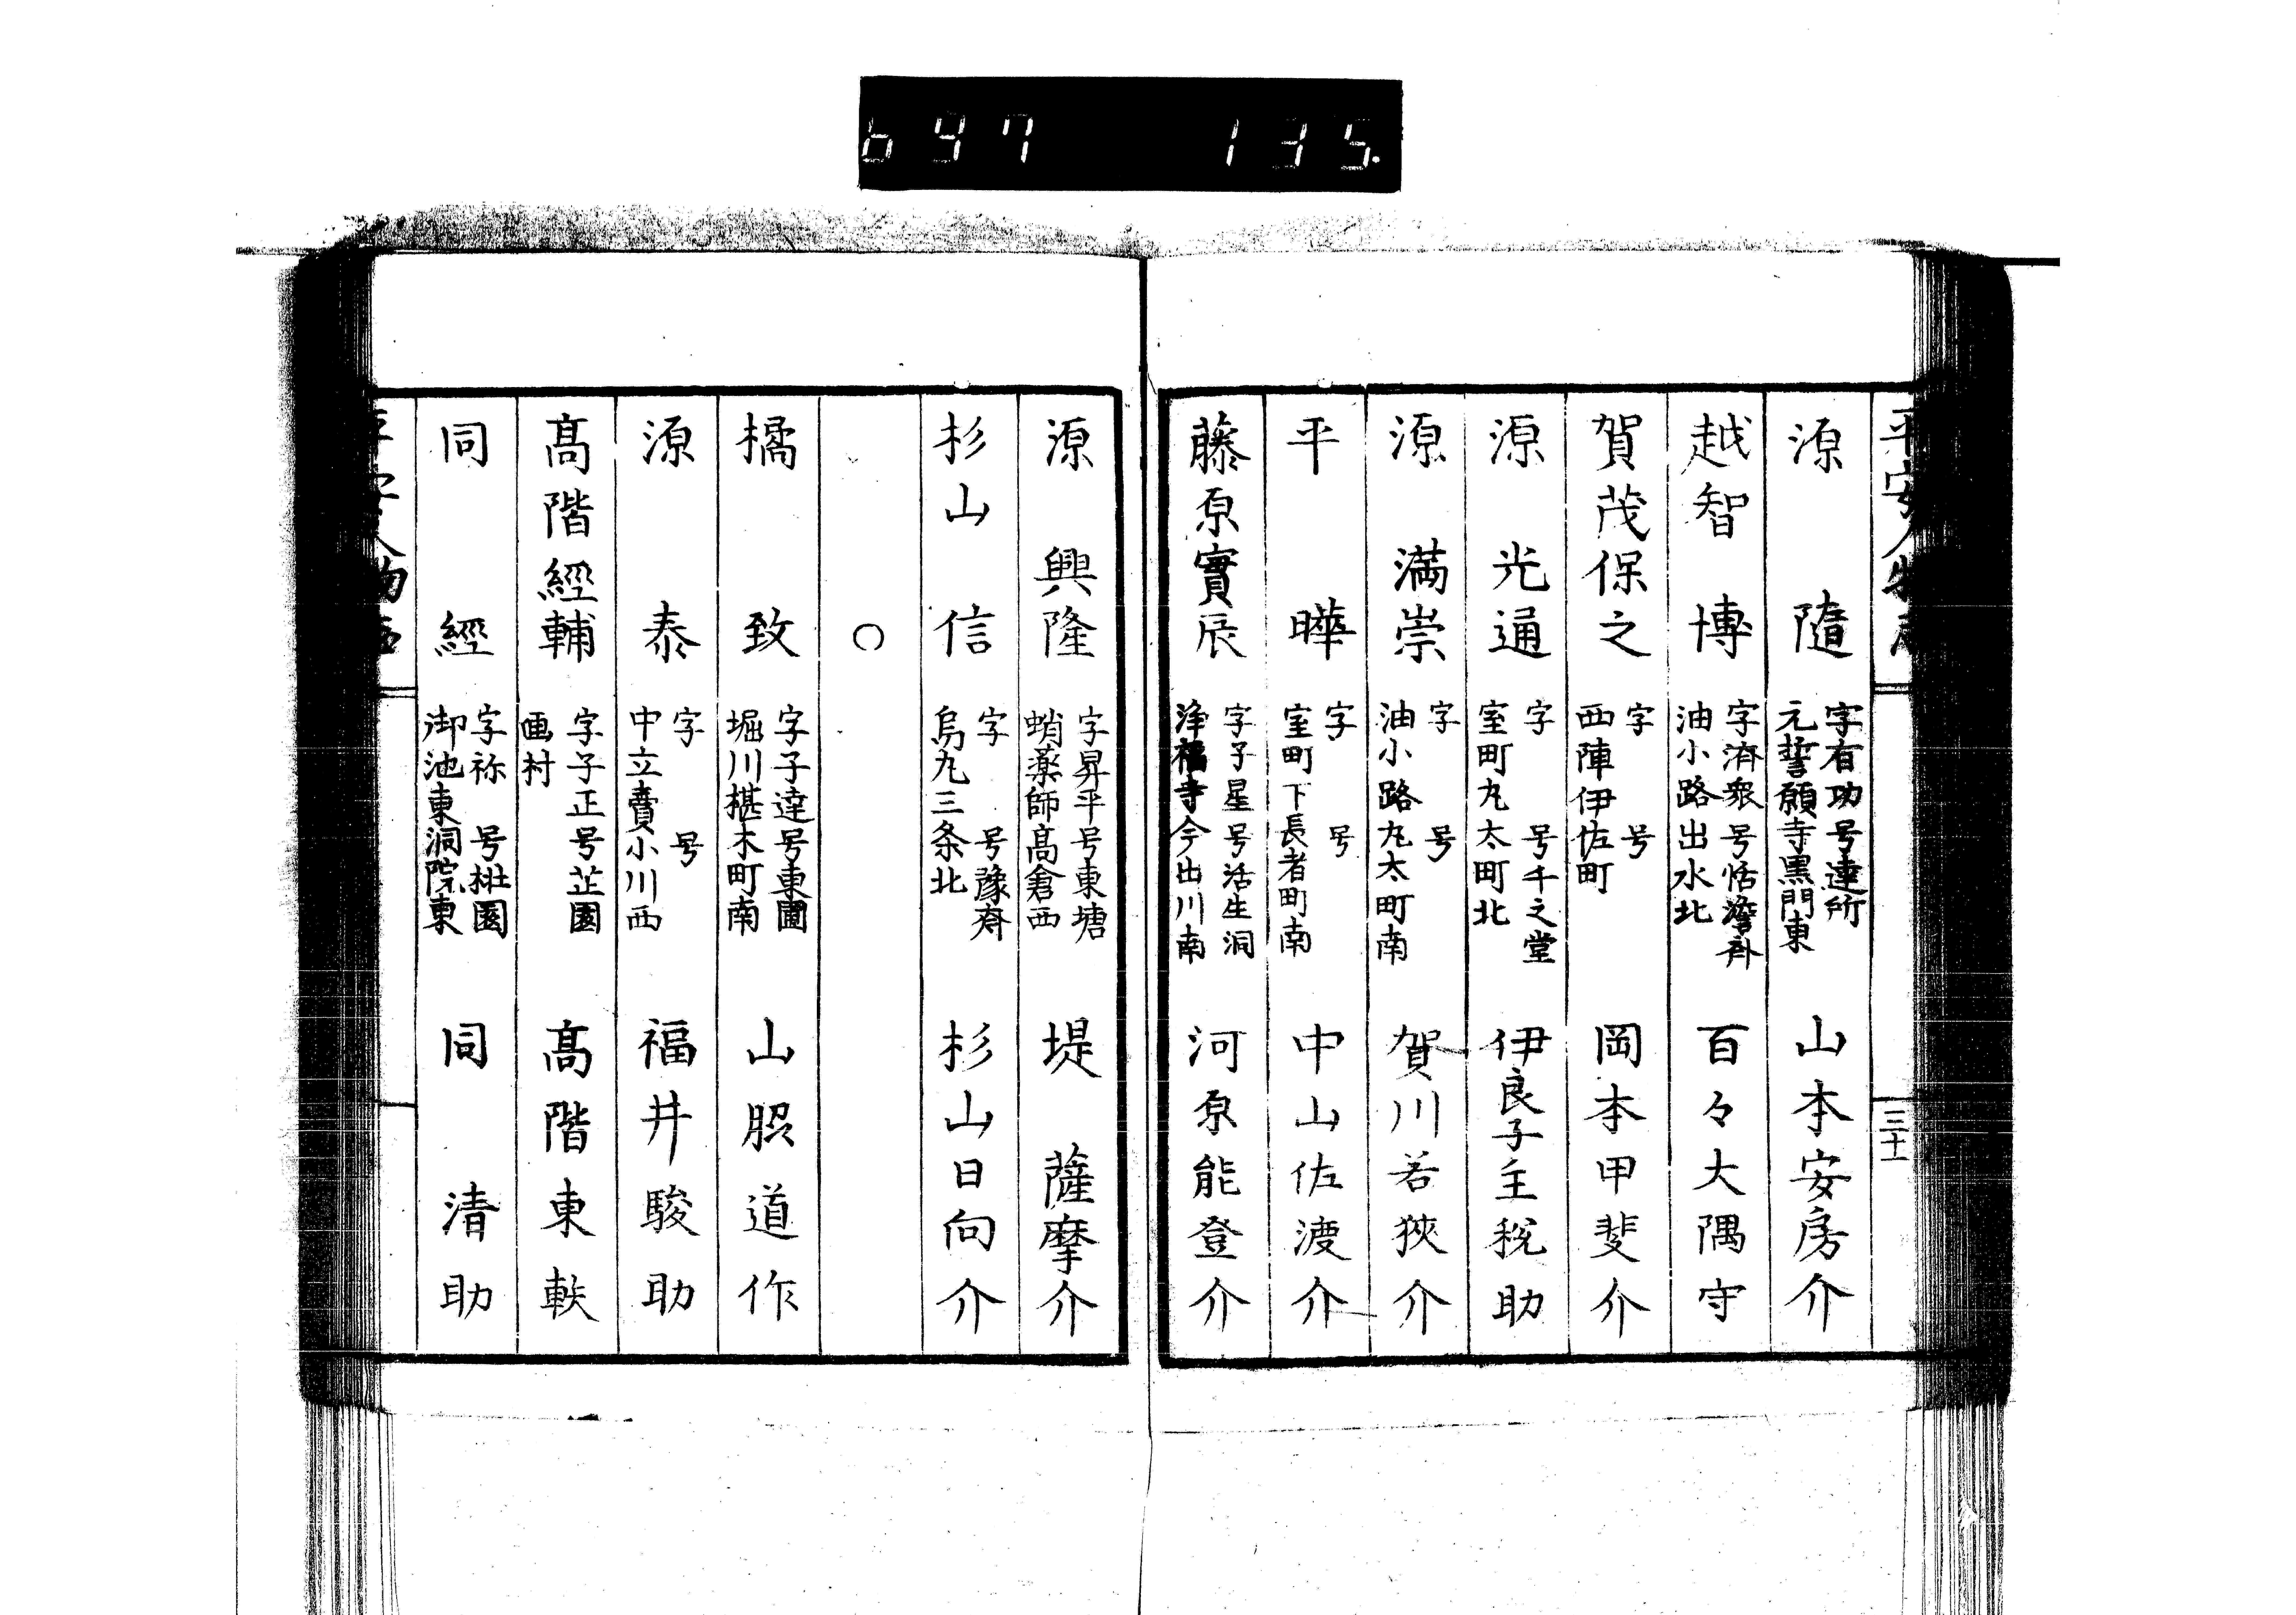 697 135.
平安人物志
三十一
源隨 字有功号達所 元誓願寺黒門東 山本安房介
越智博 字濟衆号恬澹斎 油小路出水北 百々大隅守
賀茂保之 字 号 西陣伊佐町 岡本甲斐介
源光通 字 号千之堂 室町丸太町北 伊良子主税助
源満崇 字 号 油小路丸太町南 賀川若狹介
平曄 字 号 室町下長者町南 中山佐渡介
藤原實辰 字子星号活生洞 浄福寺今出川南 河原能登介
源興隆 字昇平号東塘 蛸薬師高倉西 堤薩摩介
杉山信 字 号豫斎 烏丸三条北 杉山日向介
○
橘致 字子達号東圃 堀川椹木町南 山脇道作
源泰 字 号 中立賣小川西 福井駿助
髙階經輔 字子正号芷園 画村 髙階東軼
同經 字祢 号枉園 御池東洞院東 同清助
平安人物志